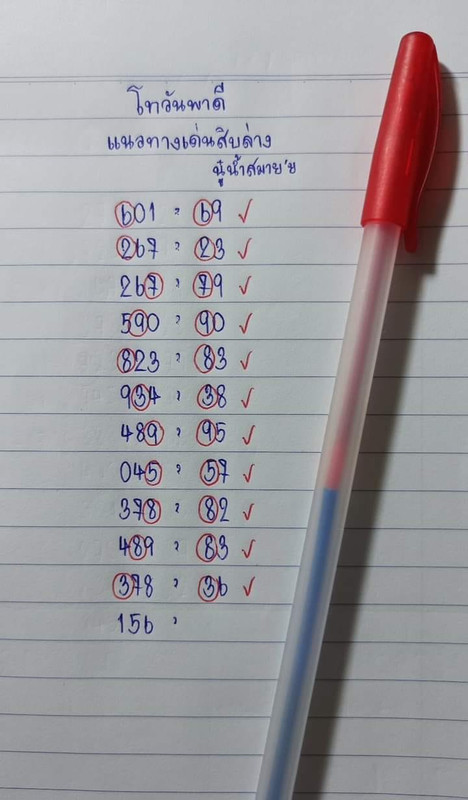 โทวันพาดี
แนวทางเด่นสิบล่าง
601 = 69 ✓
267 = 23 ✓
267 = 79 ✓
590 = 90 ✓
823 = 83 ✓
934 = 38 ✓
489 = 95 ✓
045 = 57 ✓
378 = 82 ✓
489 = 83 ✓
378 = 36 ✓
156 =